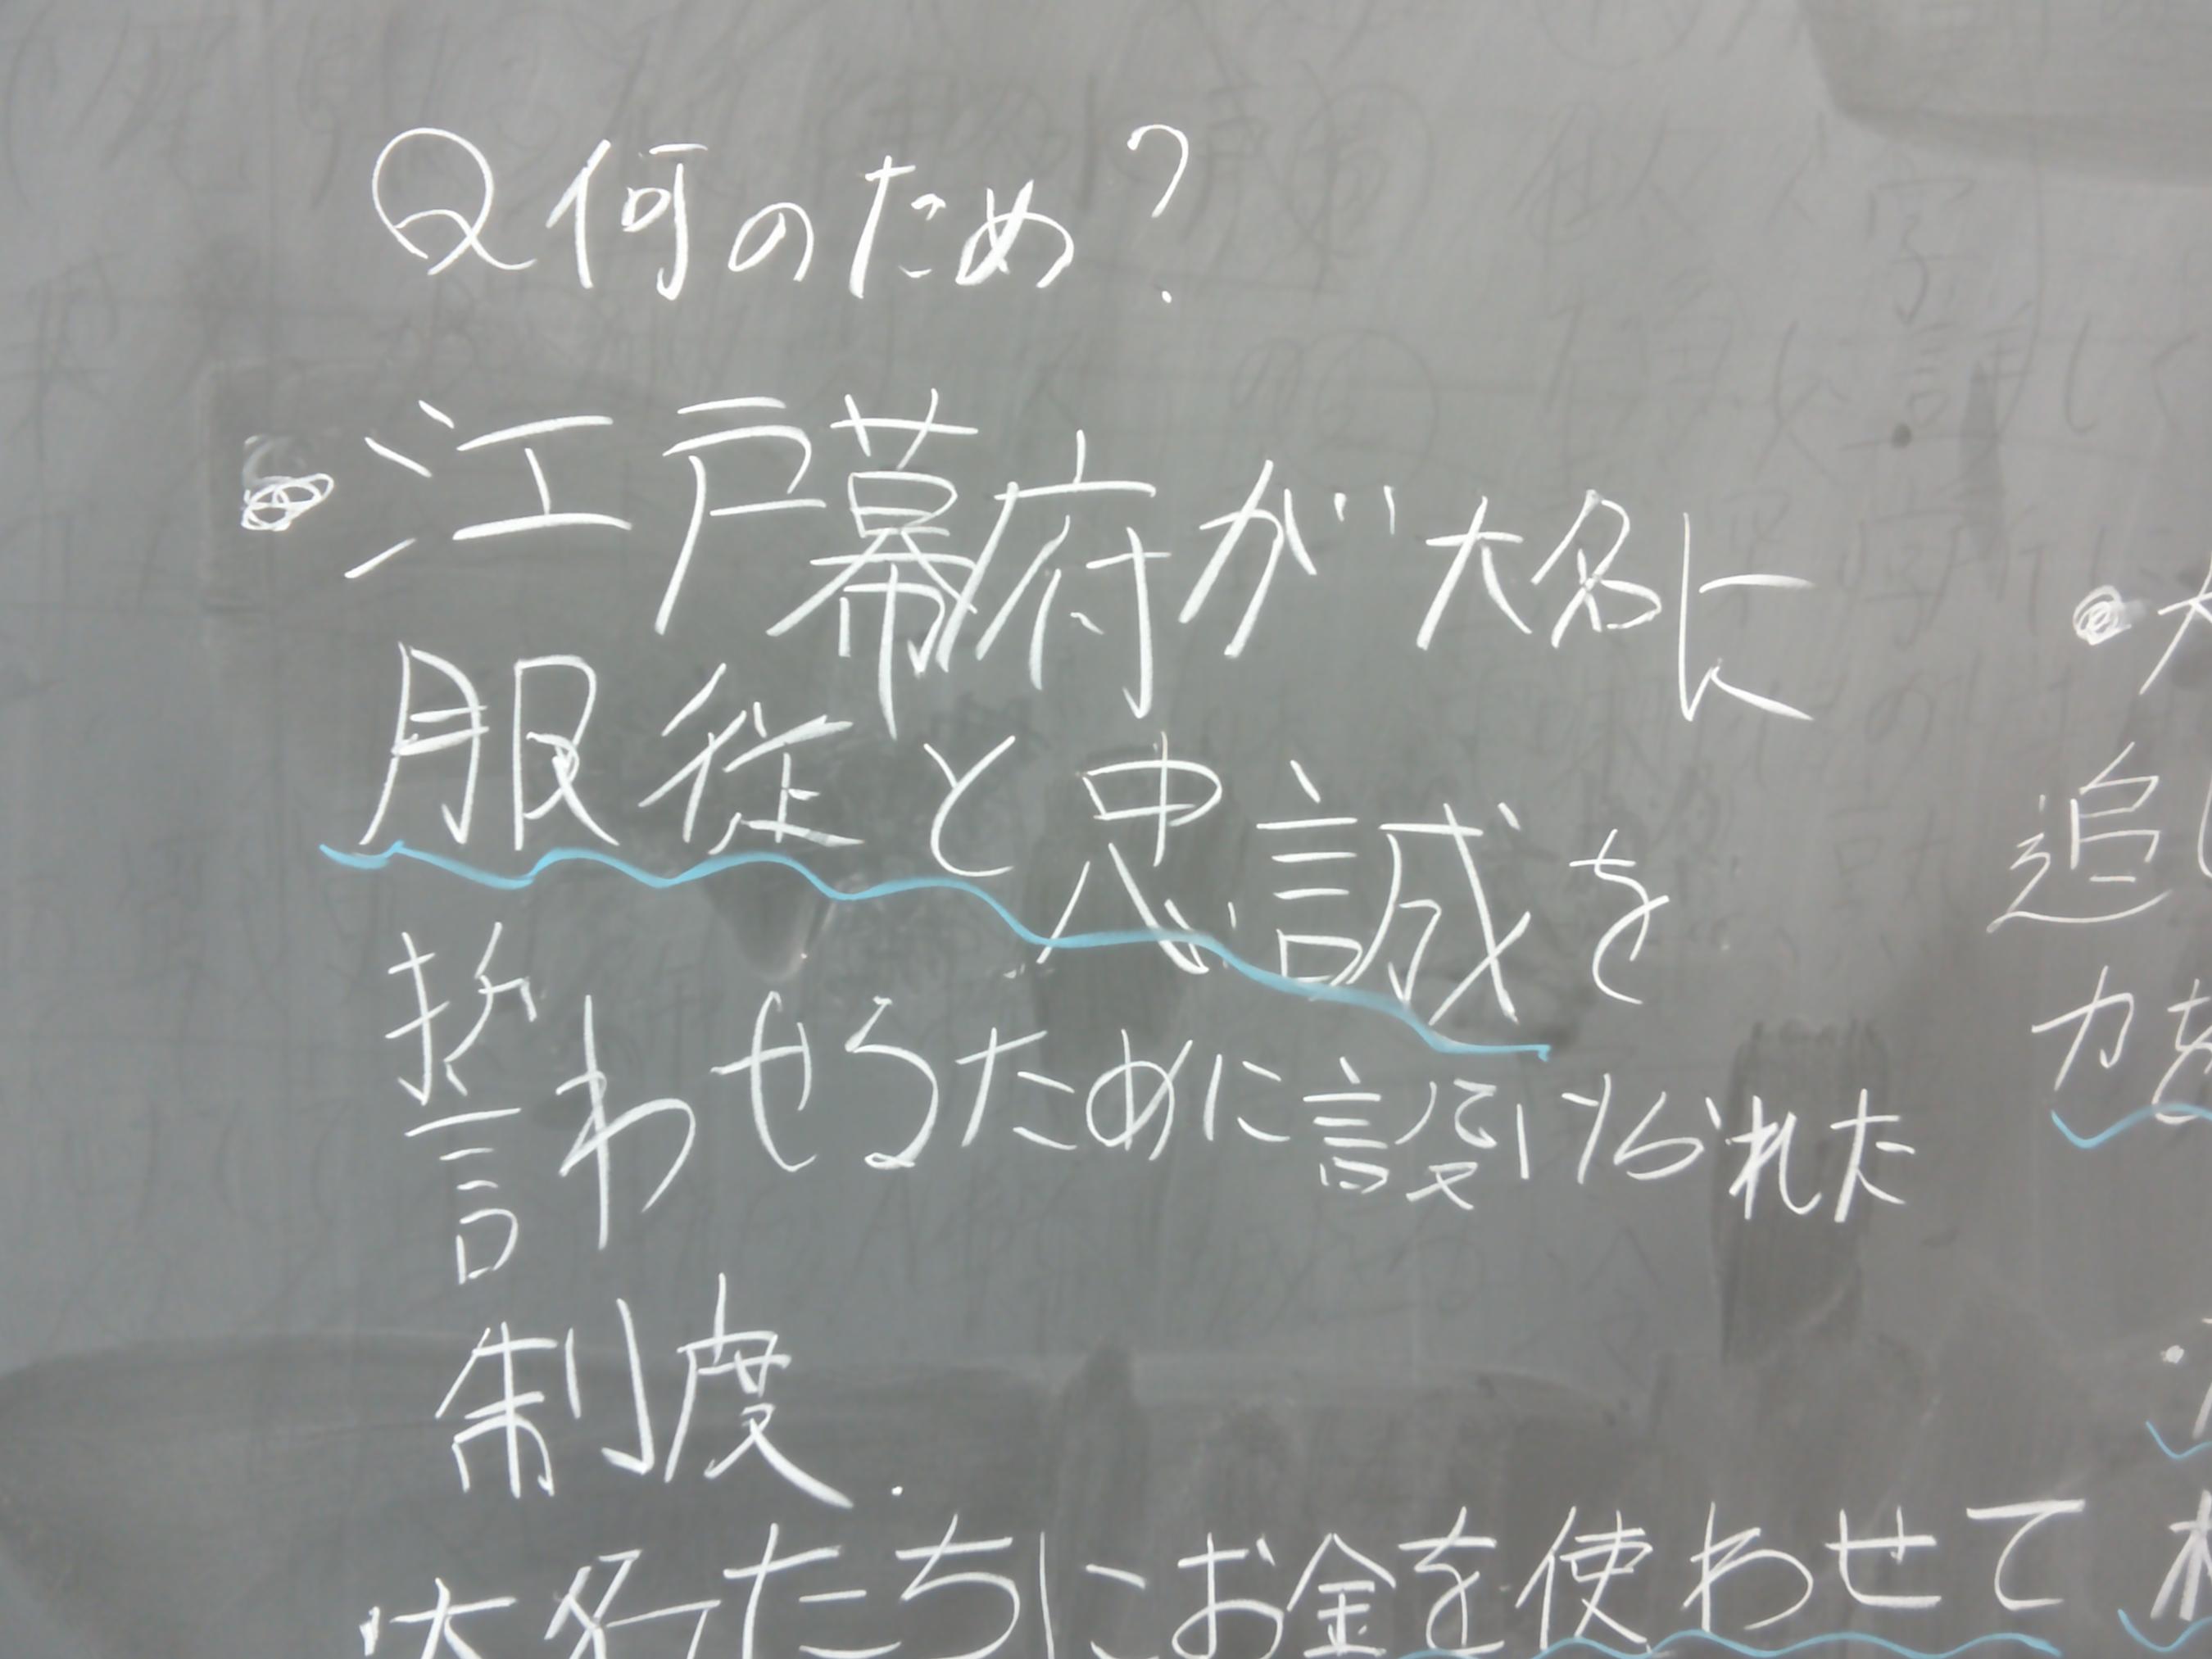 Q何のため?
江戸幕府が大名に
服従と忠誠を
誓わせるために設けられた
制度.
大名たちにお金を使わせて
追
力を